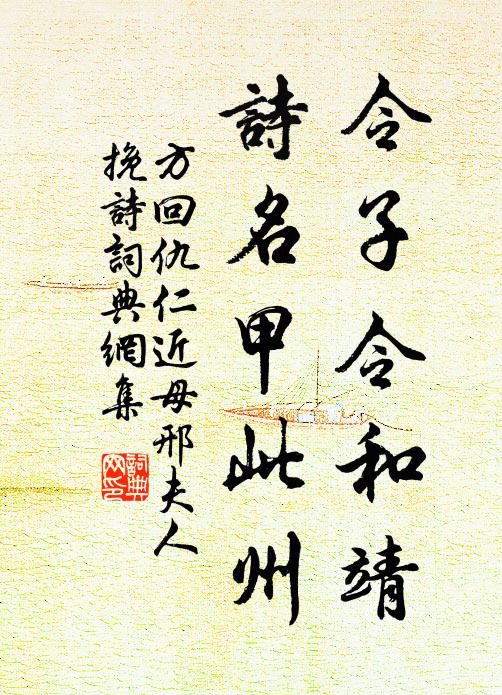 令子令和靖
詩名甲此州
方回仇仁近母邢夫人
挽詩詞典網集
詞典
网印